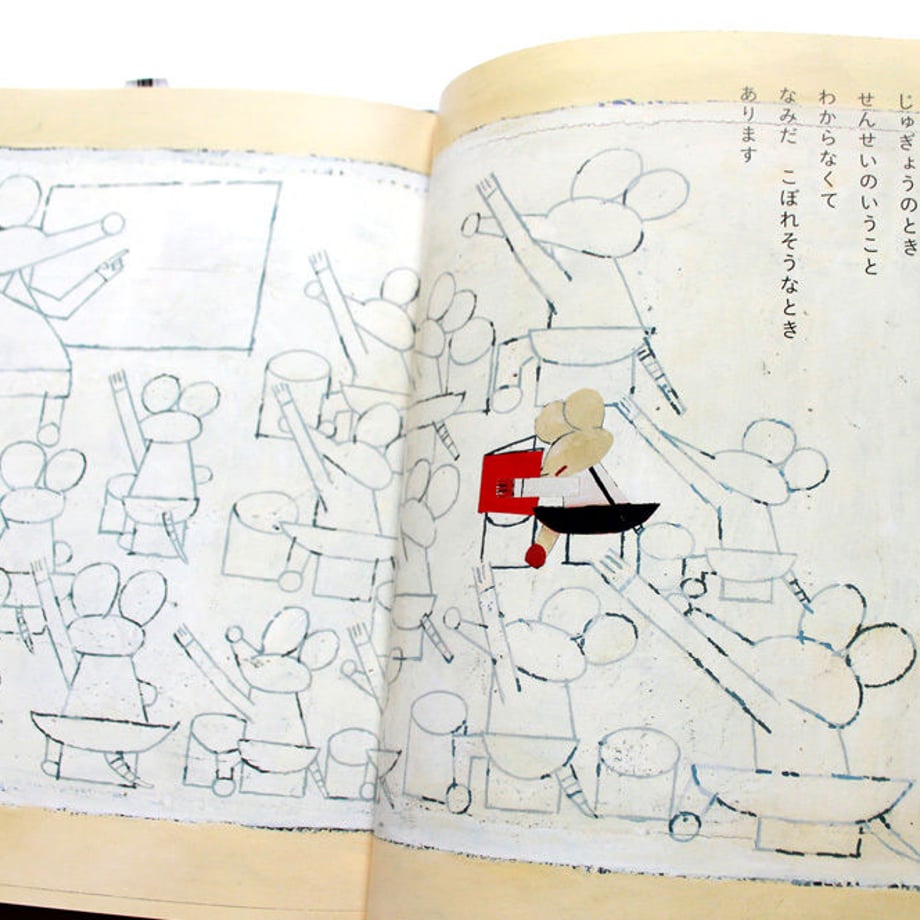 じゅぎょうのとき
せんせいのいうこと
わからなくて
なみだ　こぼれそうなとき
あります